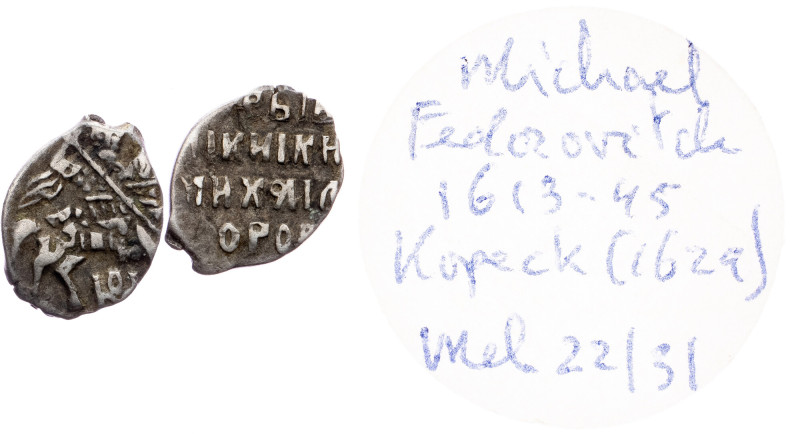 ИКИІКН
МИХАІЛ
ОРОВ
Michael
Fedorovitch
1613-45
Kopeck (1629)
Mel 22/31